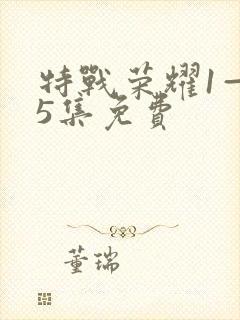 特戰榮耀1一
5集免費
董瑞